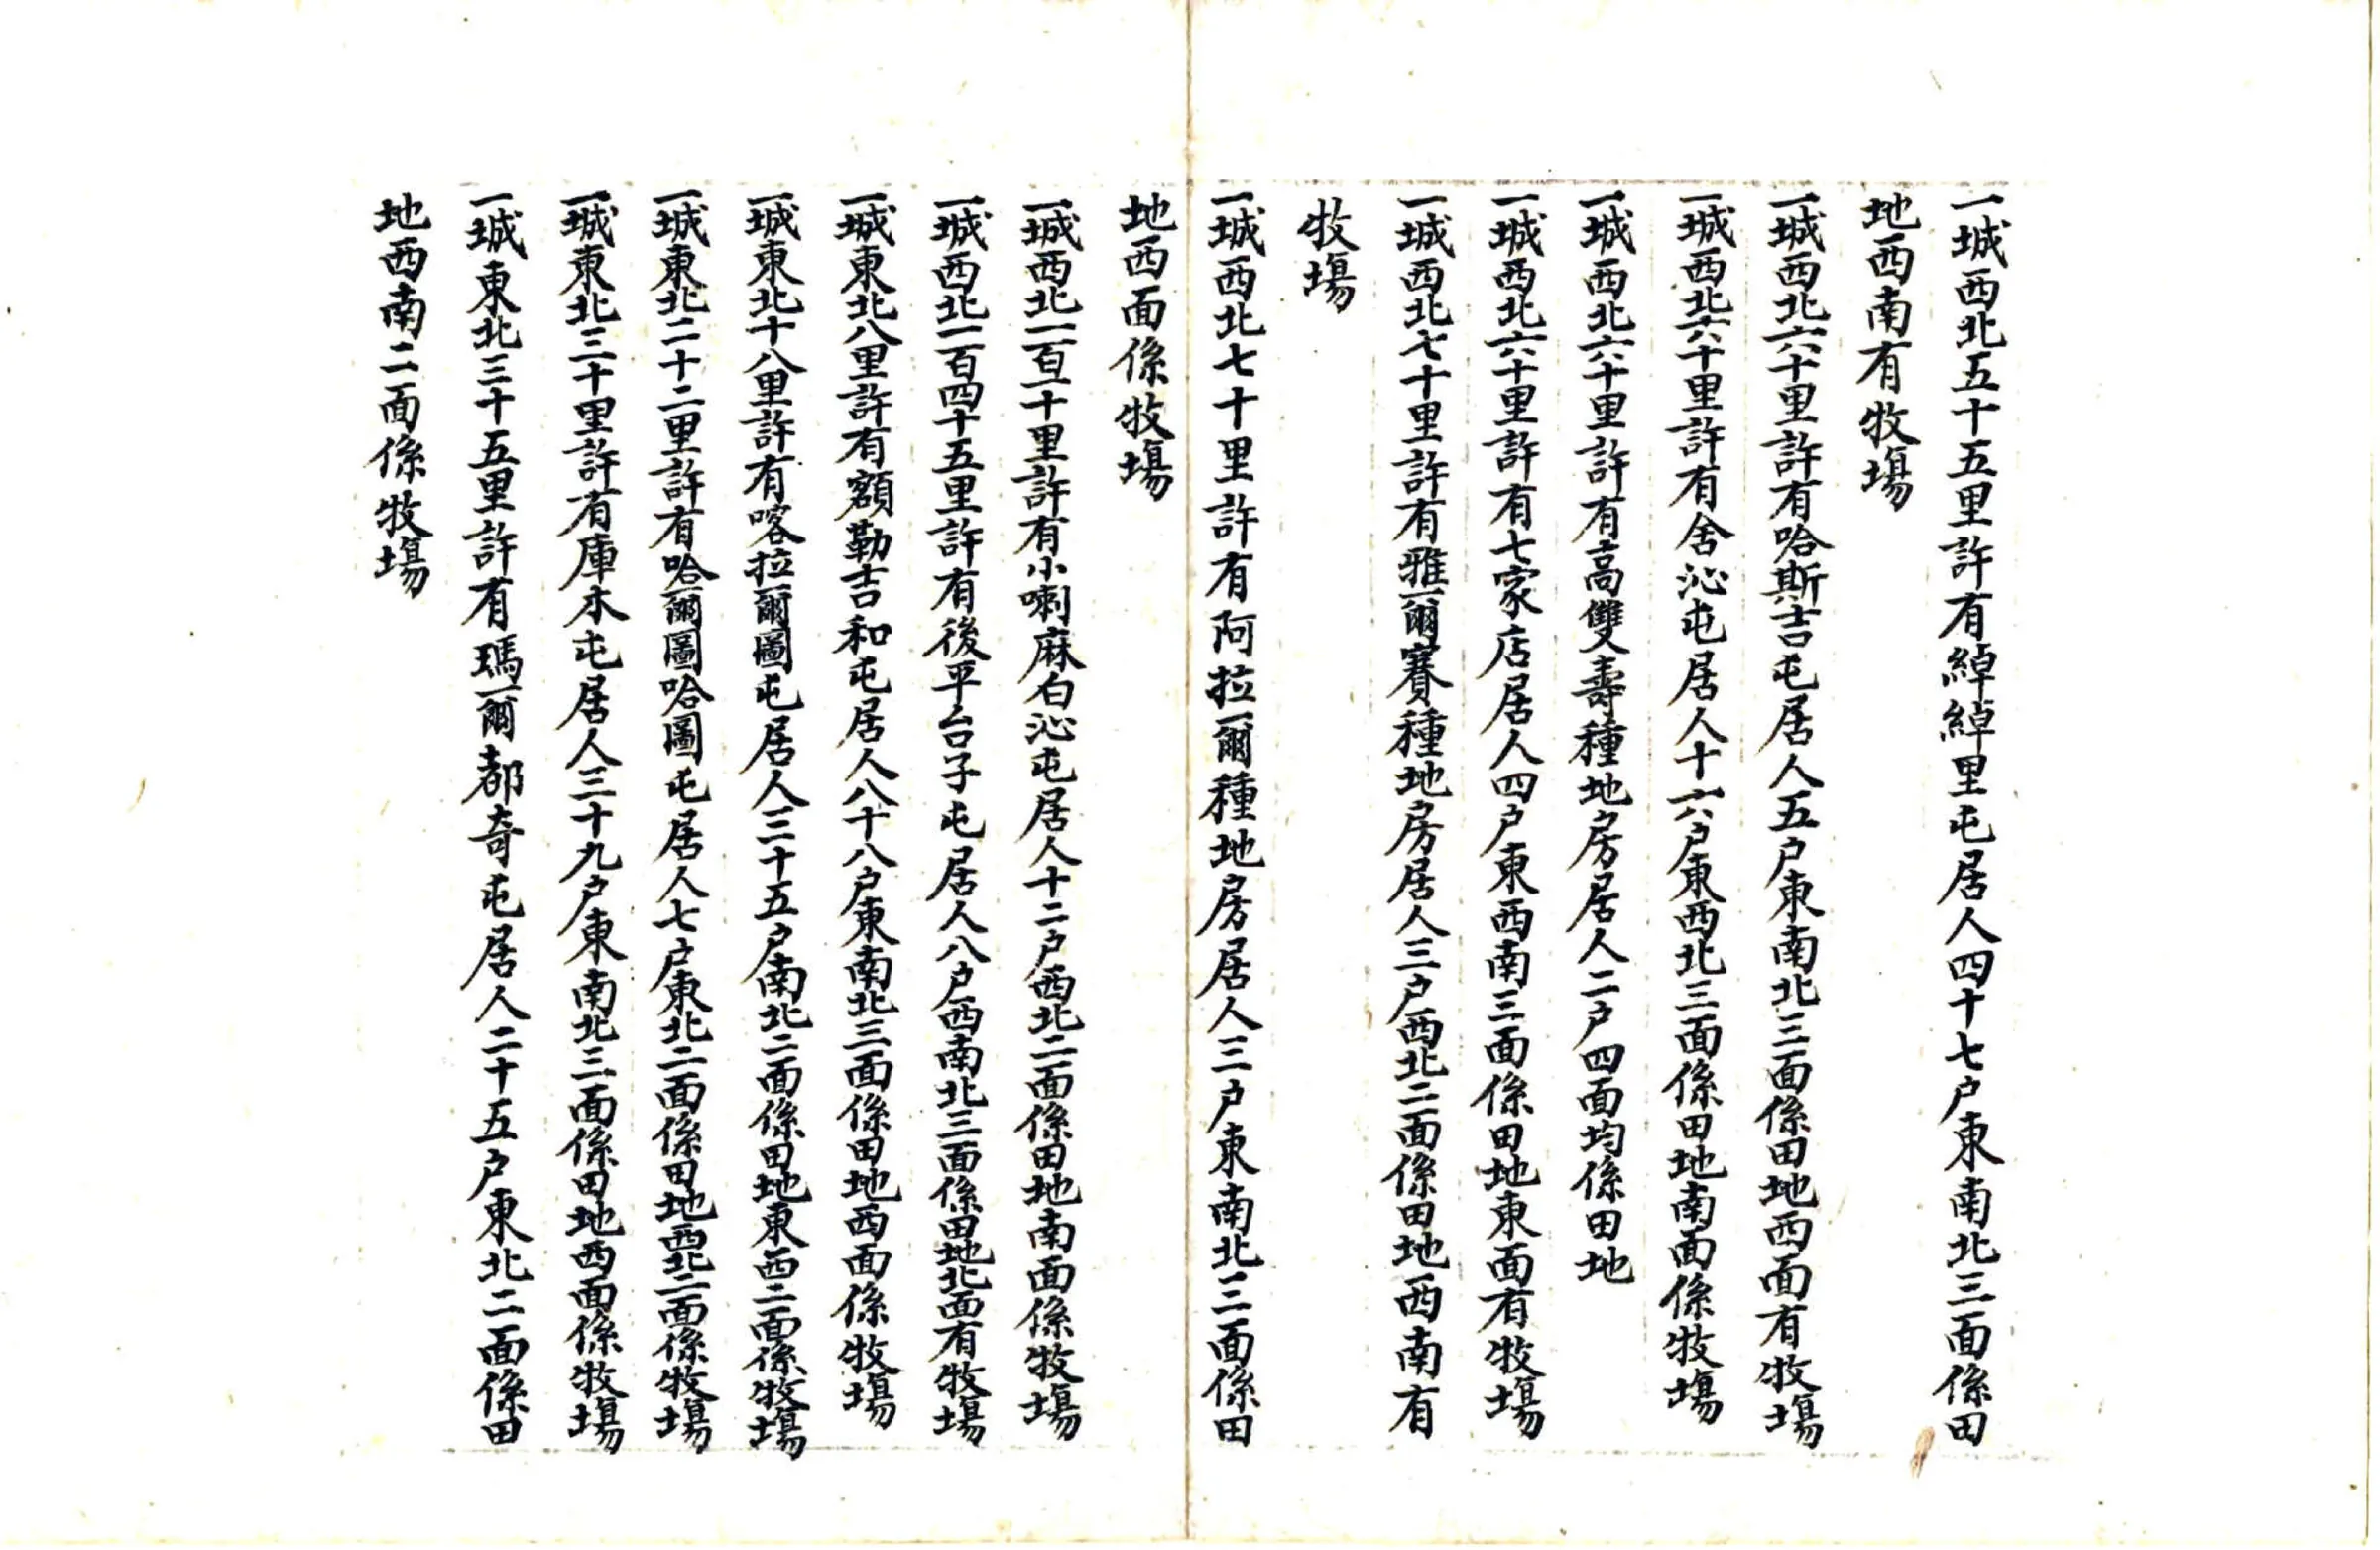 一城西北五十五里許有綽綽里屯居人四十七户東南北三面係田
地西南有牧塲
一城西北六十里許有哈斯吉屯居人五户東南北三面係田地西面有牧塲
一城西北六十里許有舍沁屯居人十六户東西北三面係田地南面係牧塲
一城西北六十里許有高雙壽種地房居人二户四面均係田地
一城西北六十里許有七家店居人四户東西南三面係田地東面有牧塲
一城西北七十里許有雅爾賽種地房居人三户西北二面係田地西南有
牧塲
一城西北七十里許有阿拉爾種地房居人三户東南北三面係田
地西面係牧塲
一城西北一百二十里許有小喇麻白沁屯居人十二户西北二面係田地南面係牧塲
一城西北一百四十五里許有後平台子屯居人八户西南北三面係田地北面有牧塲
一城東北八里許有額勒吉和屯居人八十八户東南北三面係田地西面係牧塲
一城東北十八里許有喀拉爾圖屯居人三十五户南北二面係田地東西二面係牧塲
一城東北二十二里許有哈爾圖哈圖屯居人七户東北二面係田地西北二面係牧塲
一城東北三十里許有庫木屯居人三十九户東南北三面係田地西面係牧塲
一城東北三十五里許有瑪爾都奇屯居人二十五户東北二面係田
地西南二面係牧塲